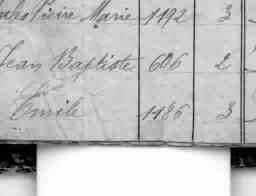 Pierre Marie 1192 3
Jean Baptiste 606 2
Emile 1186 3